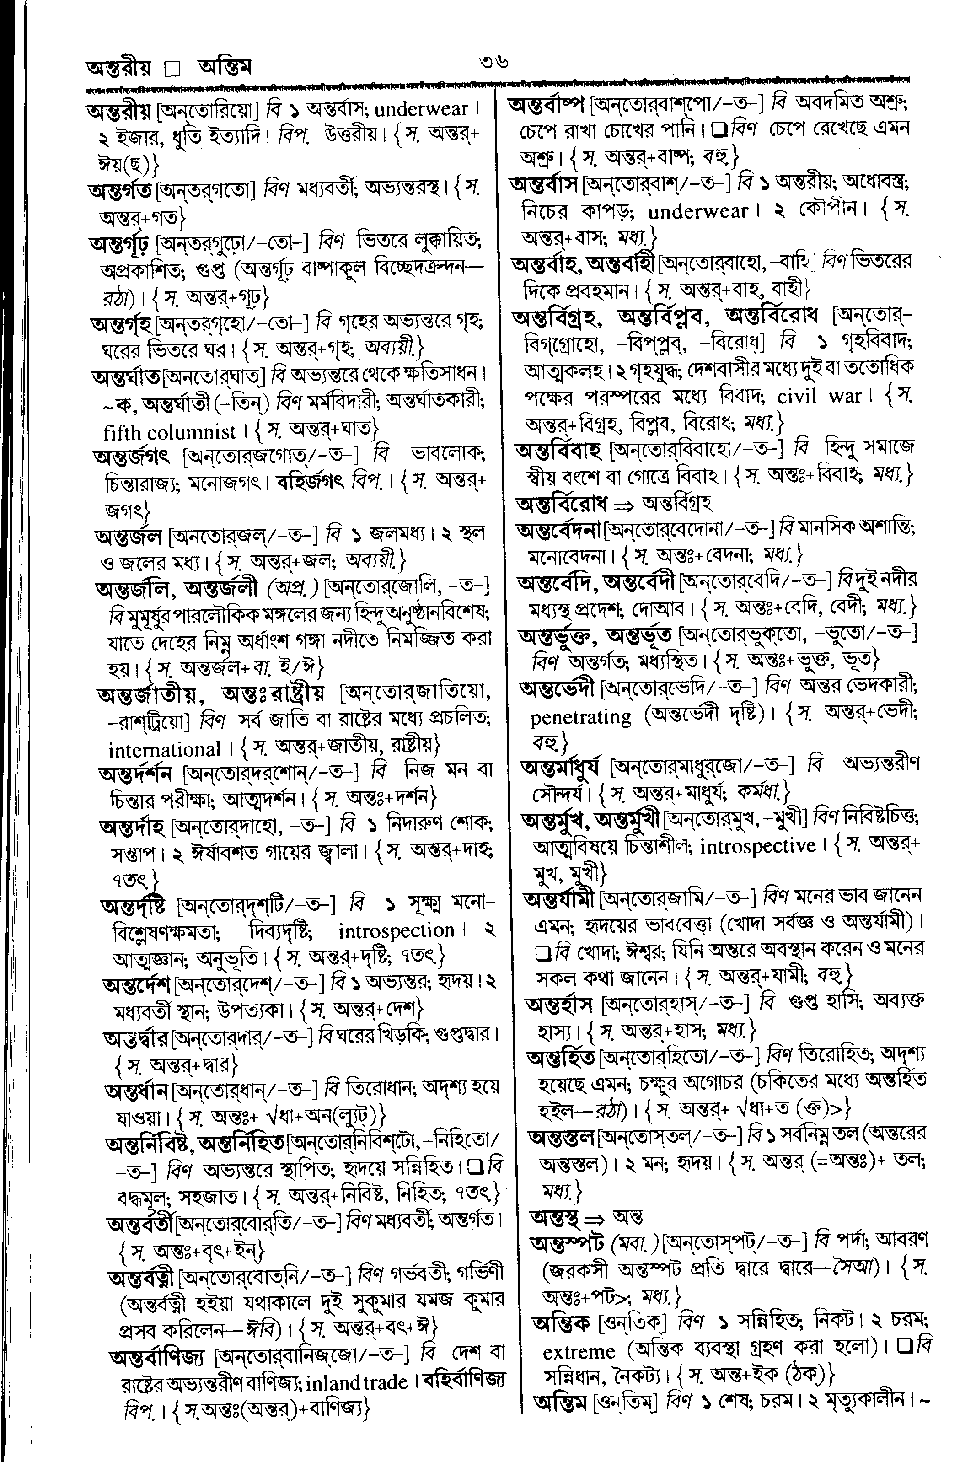 অন্তরীয় □ অন্তিম
৩৬
অন্তরীয় [অন্‌তোরিয়ো] বি ১ অন্তর্বাস; underwear।
২ ইজার, ধুতি ইত্যাদি। বিপ. উত্তরীয়। {স. অন্তর্+
ঈয়(ছ)}
অন্তর্গত [অন্‌তর্‌গতো] বিণ মধ্যবর্তী; অভ্যন্তরস্থ। {স.
অন্তর্+গত}
অন্তর্গূঢ় [অন্‌তরগুঢ়ো/-তো-] বিণ ভিতরে লুক্কায়িত;
অপ্রকাশিত; গুপ্ত (অন্তর্গূঢ় বাষ্পাকুল বিচ্ছেদক্রন্দন—
রঠা)। {স. অন্তর্+গূঢ়}
অন্তর্গৃহ [অন্‌তর্‌গৃহো/-তো-] বি গৃহের অভ্যন্তরে গৃহ;
ঘরের ভিতরে ঘর। {স. অন্তর্+গৃহ; অব্যয়ী.}
অন্তর্ঘাত [অন্‌তোর্‌ঘাত্] বি অভ্যন্তরে থেকে ক্ষতিসাধন।
~ক, অন্তর্ঘাতী (-তিন্) বিণ মর্মবিদারী; অন্তর্ঘাতকারী;
fifth columnist। {স. অন্তর্+ঘাত}
অন্তর্জগৎ [অন্‌তোর্‌জগোত্/-ত-] বি ভাবলোক;
চিন্তারাজ্য; মনোজগৎ। বহির্জগৎ বিপ.। {স. অন্তর্+
জগৎ}
অন্তর্জল [অন্‌তোর্‌জল্/-ত-] বি ১ জলমধ্য। ২ স্থল
ও জলের মধ্য। {স. অন্তর্+জল; অব্যয়ী.}
অন্তর্জলি, অন্তর্জলী (অপ্র.) [অন্‌তোর্‌জোলি, -ত-]
বি মুমূর্ষুর পারলৌকিক মঙ্গলের জন্য হিন্দু অনুষ্ঠানবিশেষ;
যাতে দেহের নিম্ন অর্ধাংশ গঙ্গা নদীতে নিমজ্জিত করা
হয়। {স. অন্তর্জল+বা. ই/ঈ}
অন্তর্জাতীয়, অন্তঃরাষ্ট্রীয় [অন্‌তোর্‌জাতিয়ো,
-রাশ্‌ট্রিয়ো] বিণ সর্ব জাতি বা রাষ্ট্রের মধ্যে প্রচলিত;
international। {স. অন্তর্+জাতীয়, রাষ্ট্রীয়}
অন্তর্দর্শন [অন্‌তোর্‌দর্‌শোন্/-ত-] বি নিজ মন বা
চিন্তার পরীক্ষা; আত্মদর্শন। {স. অন্তঃ+দর্শন}
অন্তর্দাহ [অন্‌তোর্‌দাহো, -ত-] বি ১ নিদারুণ শোক;
সন্তাপ। ২ ঈর্ষাবশত গায়ের জ্বালা। {স. অন্তর্+দাহ;
৭তৎ}
অন্তর্দৃষ্টি [অন্‌তোর্‌দৃশ্‌টি/-ত-] বি ১ সূক্ষ্ম মনো-
বিশ্লেষণক্ষমতা; দিব্যদৃষ্টি; introspection। ২
আত্মজ্ঞান; অনুভূতি। {স. অন্তর্+দৃষ্টি; ৭তৎ}
অন্তর্দেশ [অন্‌তোর্‌দেশ্/-ত-] বি ১ অভ্যন্তর; হৃদয়। ২
মধ্যবর্তী স্থান; উপত্যকা। {স. অন্তর্+দেশ}
অন্তর্দ্বার [অন্‌তোর্‌দার্/-ত-] বি ঘরের খিড়কি; গুপ্তদ্বার।
{স. অন্তর্+দ্বার}
অন্তর্ধান [অন্‌তোর্‌ধান্/-ত-] বি তিরোধান; অদৃশ্য হয়ে
যাওয়া। {স. অন্তঃ+ √ধা+অন(ল্যুট)}
অন্তর্নিবিষ্ট, অন্তর্নিহিত [অন্‌তোর্‌নিবিশ্‌টো, -নিহিতো/
-ত-] বিণ অভ্যন্তরে স্থাপিত; হৃদয়ে সন্নিহিত। ❑ বি
বদ্ধমূল; সহজাত। {স. অন্তর্+নিবিষ্ট, নিহিত; ৭তৎ}
অন্তর্বর্তী [অন্‌তোর্‌বোর্‌তি/-ত-] বিণ মধ্যবর্তী; অন্তর্গত।
{স. অন্তঃ+বৃৎ+ইন্}
অন্তর্বত্নী [অন্‌তোর্‌বোত্‌নি/-ত-] বিণ গর্ভবতী; গর্ভিণী
(অন্তর্বত্নী হইয়া যথাকালে দুই সুকুমার যমজ কুমার
প্রসব করিলেন—ঈবি)। {স. অন্তর্+বৎ+ঈ}
অন্তর্বাণিজ্য [অন্‌তোর্‌বানিজ্‌জো/-ত-] বি দেশ বা
রাষ্ট্রের অভ্যন্তরীণ বাণিজ্য; inland trade। বহির্বাণিজ্য
বিপ.। {স. অন্তঃ(অন্তর্)+বাণিজ্য}
অন্তর্বাষ্প [অন্‌তোর্‌বাশ্‌পো/-ত-] বি অবদমিত অশ্রু;
চেপে রাখা চোখের পানি। ❑ বিণ চেপে রেখেছে এমন
অশ্রু। {স. অন্তর্+বাষ্প; বহু.}
অন্তর্বাস [অন্‌তোর্‌বাশ্/-ত-] বি ১ অন্তরীয়; অধোবস্ত্র;
নিচের কাপড়; underwear। ২ কৌপীন। {স.
অন্তর্+বাস; মধ্য.}
অন্তর্বাহ, অন্তর্বাহী [অন্‌তোর্‌বাহো, -বাহি বিণ ভিতরের
দিকে প্রবহমান। {স. অন্তর্+বাহ, বাহী}
অন্তর্বিগ্রহ, অন্তর্বিপ্লব, অন্তর্বিরোধ [অন্‌তোর্-
বিগ্‌গ্রোহো, -বিপ্‌প্লব, -বিরোধ্] বি ১ গৃহবিবাদ;
আত্মকলহ। ২ গৃহযুদ্ধ; দেশবাসীর মধ্যে দুই বা ততোধিক
পক্ষের পরস্পরের মধ্যে বিবাদ; civil war। {স.
অন্তর্+বিগ্রহ, বিপ্লব, বিরোধ; মধ্য.}
অন্তর্বিবাহ [অন্‌তোর্‌বিবাহো/-ত-] বি হিন্দু সমাজে
স্বীয় বংশে বা গোত্রে বিবাহ। {স. অন্তঃ+বিবাহ; মধ্য.}
অন্তর্বিরোধ ⇒ অন্তর্বিগ্রহ
অন্তর্বেদনা [অন্‌তোর্‌বেদোনা/-ত-] বি মানসিক অশান্তি;
মনোবেদনা। {স. অন্তঃ+বেদনা; মধ্য.}
অন্তর্বেদি, অন্তর্বেদী [অন্‌তোর্‌বেদি/-ত-] বি দুই নদীর
মধ্যস্থ প্রদেশ; দোআব। {স. অন্তঃ+বেদি, বেদী; মধ্য.}
অন্তর্ভুক্ত, অন্তর্ভূত [অন্‌তোর্‌ভুক্‌তো, -ভুতো/-ত-]
বিণ অন্তর্গত; মধ্যস্থিত। {স. অন্তঃ+ভুক্ত, ভূত}
অন্তর্ভেদী [অন্‌তোর্‌ভেদি/-ত-] বিণ অন্তর ভেদকারী;
penetrating (অন্তর্ভেদী দৃষ্টি)। {স. অন্তর্+ভেদী;
বহু}
অন্তর্মাধুর্য [অন্‌তোর্‌মাধুর্‌জো/-ত-] বি অভ্যন্তরীণ
সৌন্দর্য। {স. অন্তর্+মাধুর্য; কর্মধা.}
অন্তর্মুখ, অন্তর্মুখী [অন্‌তোর্‌মুখ্, -মুখী] বিণ নিবিষ্টচিত্ত;
আত্মবিষয়ে চিন্তাশীল; introspective। {স. অন্তর্+
মুখ, মুখী}
অন্তর্যামী [অন্‌তোর্‌জামি/-ত-] বিণ মনের ভাব জানেন
এমন; হৃদয়ের ভাববেত্তা (খোদা সর্বজ্ঞ ও অন্তর্যামী)।
❑ বি খোদা; ঈশ্বর; যিনি অন্তরে অবস্থান করেন ও মনের
সকল কথা জানেন। {স. অন্তর্+যামী; বহু}
অন্তর্হাস [অন্‌তোর্‌হাস্/-ত-] বি গুপ্ত হাসি; অব্যক্ত
হাস্য। {স. অন্তর্+হাস; মধ্য.}
অন্তর্হিত [অন্‌তোর্‌হিতো/-ত-] বিণ তিরোহিত; অদৃশ্য
হয়েছে এমন; চক্ষুর অগোচর (চকিতের মধ্যে অন্তর্হিত
হইল—রঠা)। {স. অন্তর্+ √ধা+ত (ক্ত)>}
অন্তস্তল [অন্‌তোস্‌তল্/-ত-] বি ১ সর্বনিম্ন তল (অন্তরের
অন্তস্তল)। ২ মন; হৃদয়। {স. অন্তর্ (=অন্তঃ)+ তল;
মধ্য.}
অন্তস্থ ⇒ অন্ত
অন্তস্পট (মবা.) [অন্‌তোস্‌পট্/-ত-] বি পর্দা; আবরণ
(জরকসী অন্তস্পট প্রতি দ্বারে দ্বারে—সৈআ)। {স.
অন্তঃ+পট>; মধ্য.}
অন্তিক [ওন্‌তিক্] বিণ ১ সন্নিহিত; নিকট। ২ চরম;
extreme (অন্তিক ব্যবস্থা গ্রহণ করা হলো)। ❑ বি
সন্নিধান, নৈকট্য। {স. অন্ত+ইক (ঠক্)}
অন্তিম [ওন্‌তিম্] বিণ ১ শেষ; চরম। ২ মৃত্যুকালীন। ~